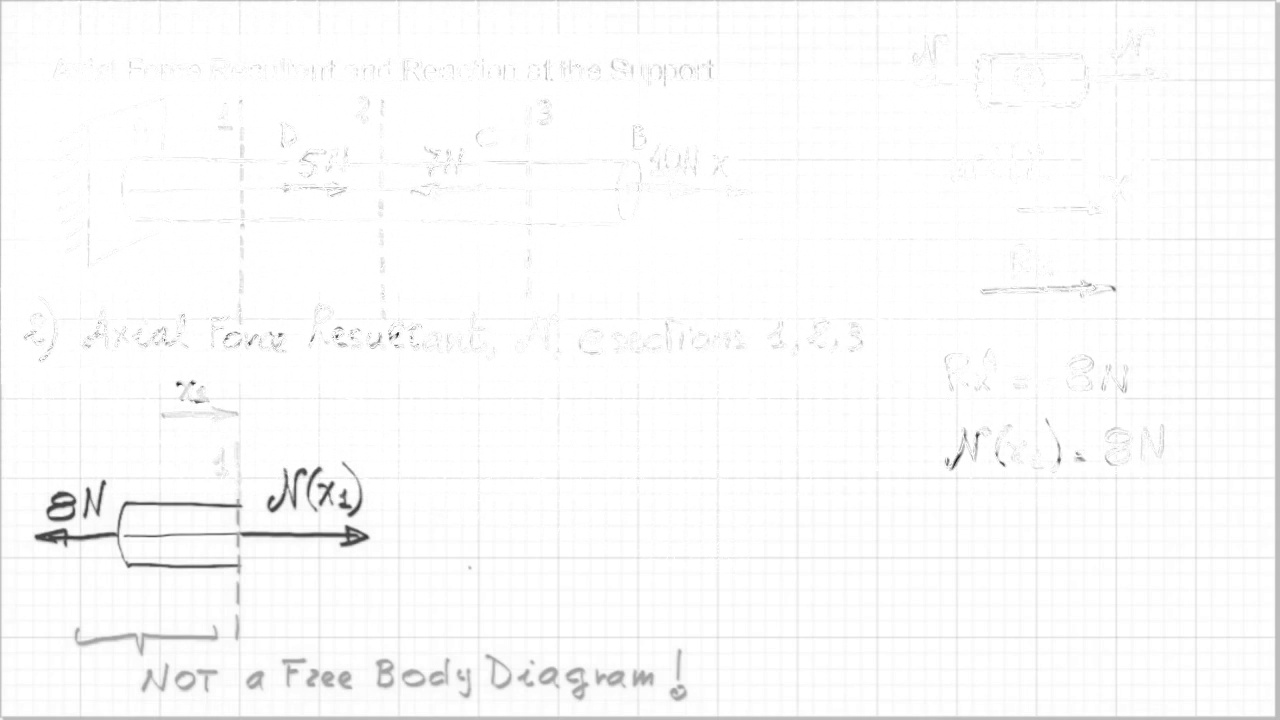 Axial Force Resultant and Reaction at the Support
N N
1 2 3
D C B
5N 7N 10N x
x
2) Axial Force Resultant, N, @ sections 1, 2, 3
= 8N
x₁
N(x₁) = 8N
1
8N N(x₁)
NOT a Free Body Diagram!